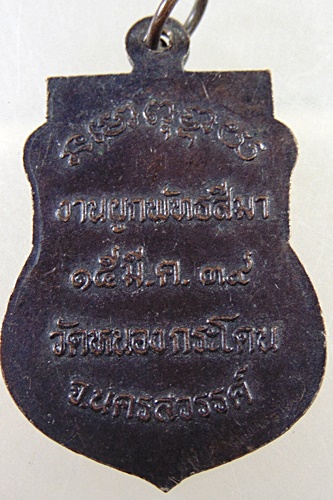 งานผูกพัทธสีมา
๑๕ มี.ค. ๓๙
วัดหนองกระโดน
จ.นครสวรรค์